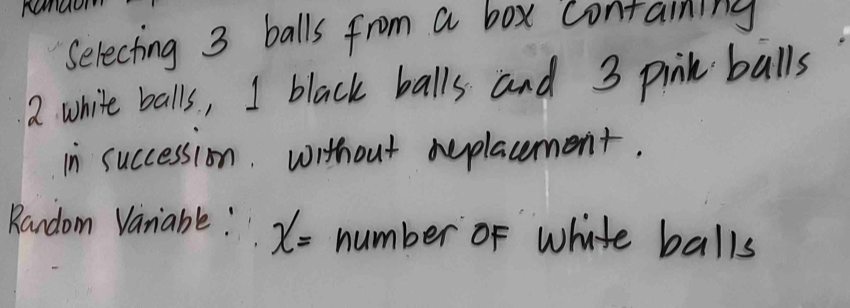 Random
Selecting 3 balls from a box containing
2 white balls, 1 black balls and 3 pink balls
in succession. without replacement.
Random Variable: X= number OF white balls